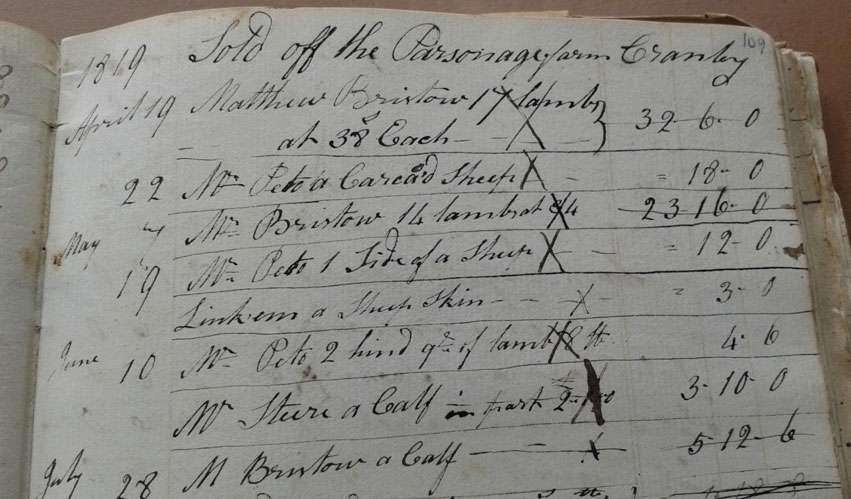 109
1819 Sold off the Parsonage farm Cranby
April 19 Matthew Bristow 17 lambs
at 38s Each 32 - 6 - 0
22 Mr Peto a Carcad Sheep = 18 - 0
May 7 Mr Bristow 14 lambs at 34 23 16 - 0
19 Mr Peto 1 Side of a Sheep = 12 - 0
Linkem a Sheep Skin = 3 - 0
June 10 Mr Peto 2 hind qrs of lamb 8 lb 4 - 6
Mr Steere a Calf in part 3 - 10 - 0
July 28 M Bristow a Calf 5 - 12 - 6